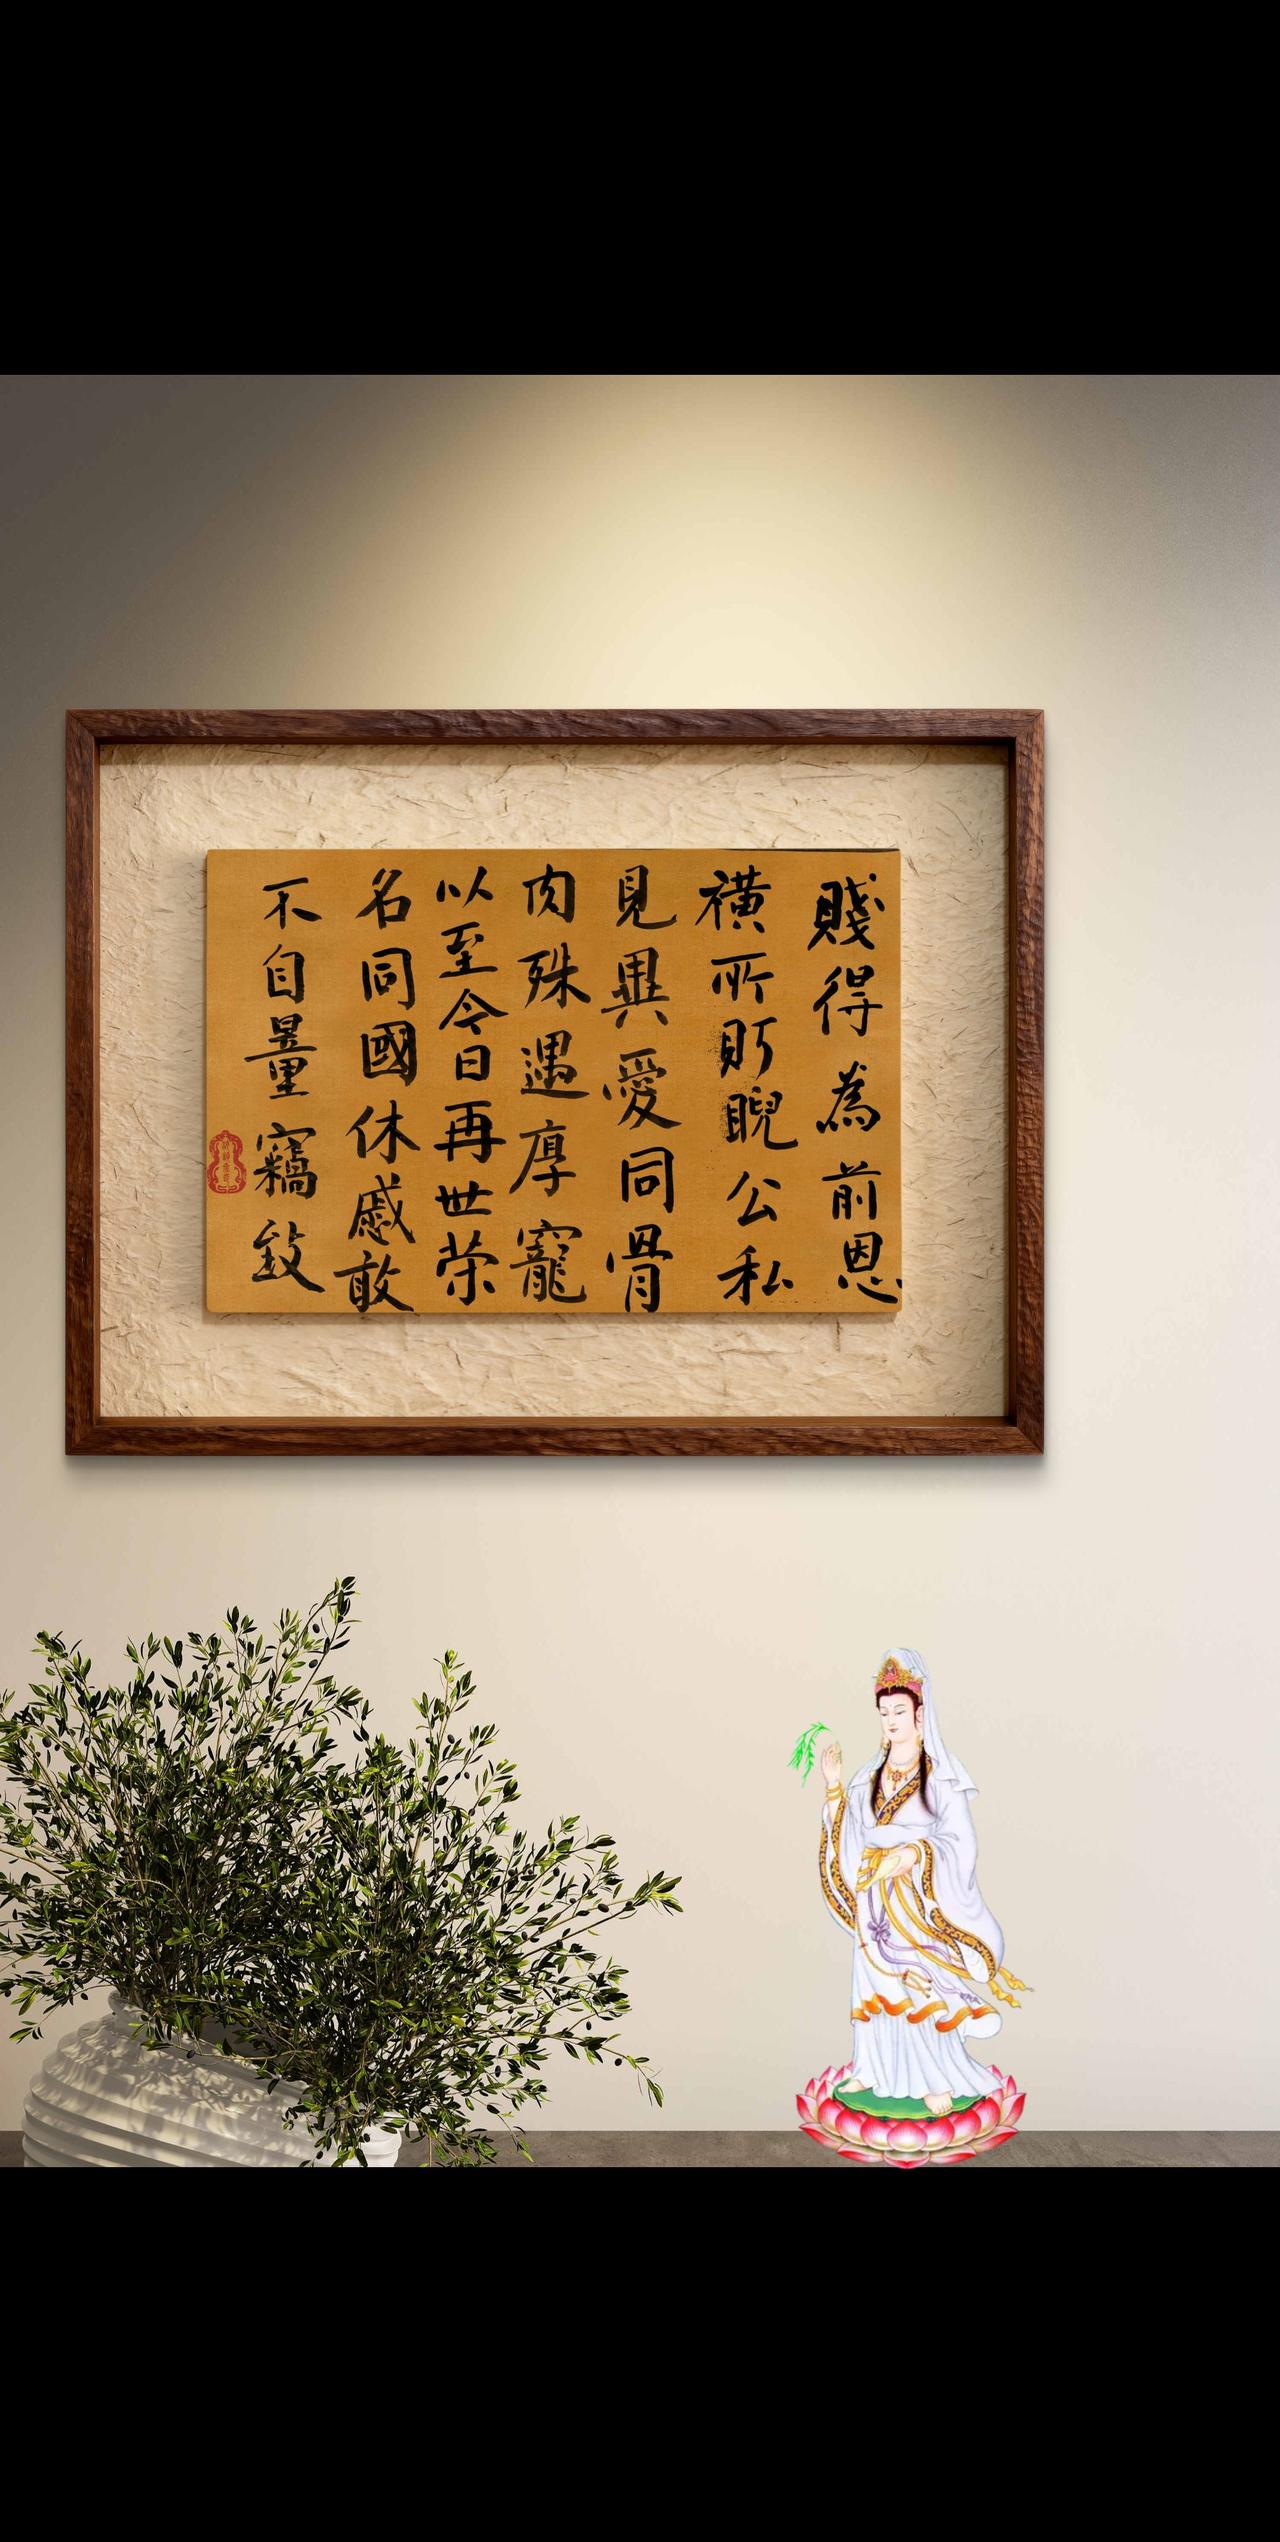 賤得為前恩
橫所盻睨公私
見異愛同骨
肉殊遇厚寵
以至今日再世榮
名同國休慼敢
不自量竊致